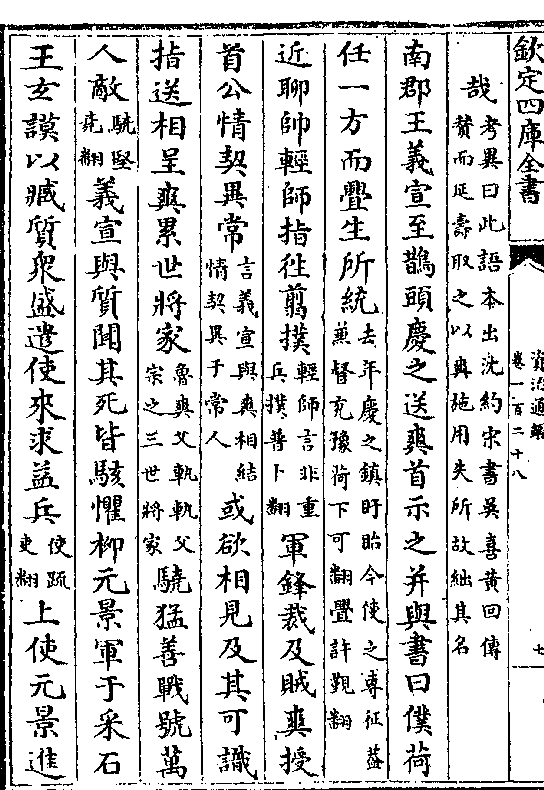 欽定四庫全書
資治通鑑
卷一百二十八
七
哉考異曰此語本出沈約宋書吳喜黃回傳
贊而延壽取之以爽施用失所故絀其名
南郡王義宣至鵲頭慶之送爽首示之并與書曰僕荷
任一方而釁生所統去年慶之鎮盱眙今使之專征蓋
兼督兗豫荷下可翻釁許覲翻
近聊帥輕師指往翦撲輕師言非重
兵撲普卜翻軍鋒裁及賊爽授
首公情契異常言義宣與爽相結
情契異于常人或欲相見及其可識
指送相呈爽累世將家魯爽父軌軌父
宗之三世將家驍猛善戰號萬
人敵驍堅
堯翻義宣與質聞其死皆駭懼柳元景軍于采石
王玄謨以臧質衆盛遣使來求益兵使疏
吏翻上使元景進